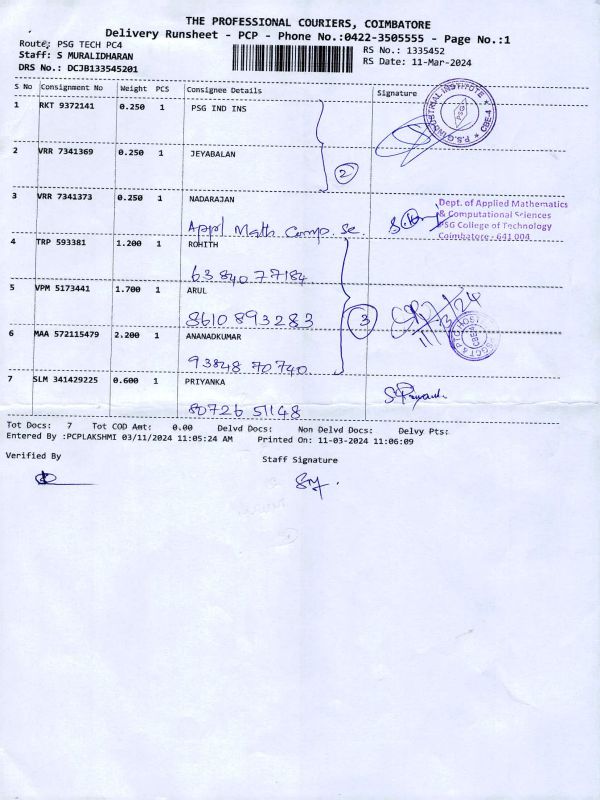 THE PROFESSIONAL COURIERS, COIMBATORE
Delivery Runsheet - PCP - Phone No.:0422-3505555 - Page No.:1
Route: PSG TECH PC4
Staff: S MURALIDHARAN
DRS No.: DCJB133545201
RS No.: 1335452
RS Date: 11-Mar-2024
S No Consignment No Weight PCS Consignee Details Signature
1 RKT 9372141 0.250 1 PSG IND INS
P.S.G. INDUSTRIAL INSTITUTE CBE-4
PSG
2 VRR 7341369 0.250 1 JEYABALAN
2
3 VRR 7341373 0.250 1 NADARAJAN
Appl Math Comp. Se.
Dept. of Applied Mathematics
& Computational Sciences
PSG College of Technology
Coimbatore - 641 004
4 TRP 593381 1.200 1 ROHITH
63840 77184
5 VPM 5173441 1.700 1 ARUL
8610893283
3
6 MAA 572115479 2.200 1 ANANADKUMAR
93848 70740
7 SLM 341429225 0.600 1 PRIYANKA
80726 51148
Tot Docs: 7 Tot COD Amt: 0.00 Delvd Docs: Non Delvd Docs: Delvy Pts:
Entered By :PCPLAKSHMI 03/11/2024 11:05:24 AM Printed On: 11-03-2024 11:06:09
Verified By
Staff Signature